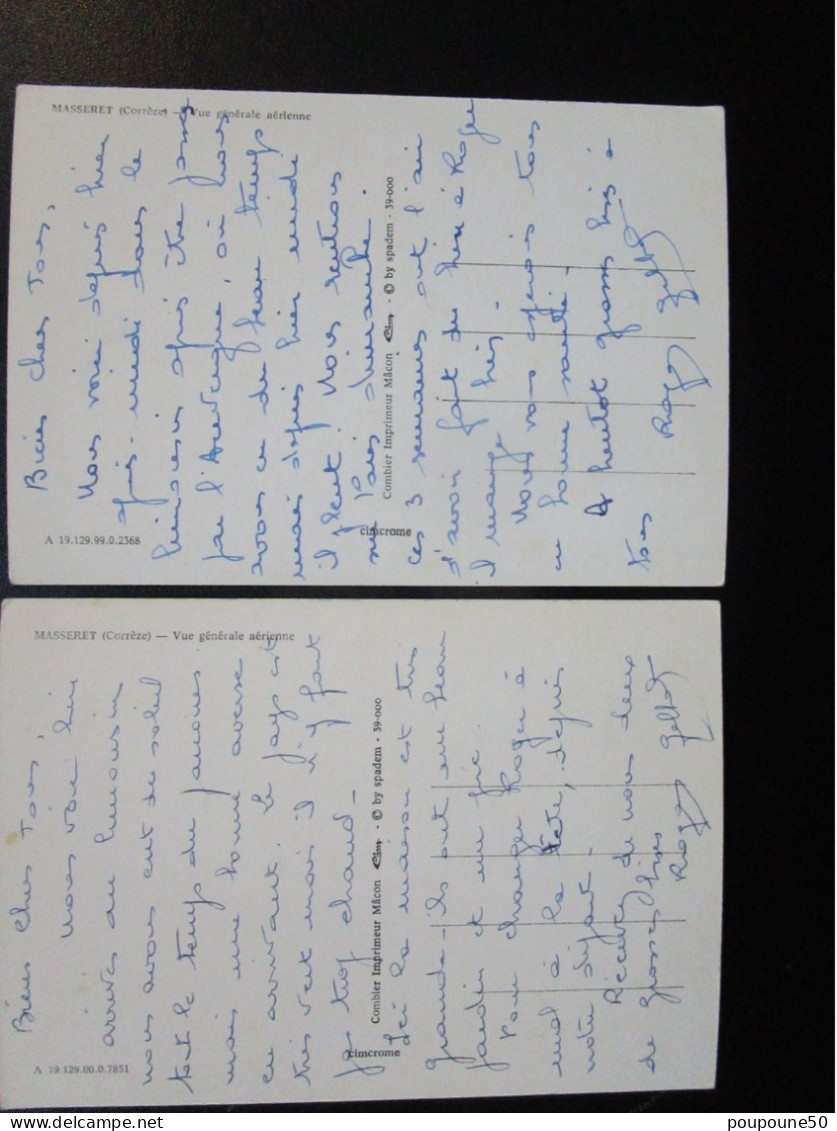 MASSERET (Corrèze) — Vue générale aérienne
Bien chers Tous,
Nous voici depuis hier
après-midi dans le
Limousin après être passé
par l'Auvergne, où nous
avons eu du beau temps
mais depuis hier midi
il pleut. Nous rentrons
sur Paris dimanche.
ces 3 semaines ont l'air
d'avoir fait du bien à Roger
il mange bien.
Nous vous espérons tous
en bonne santé.
A bientôt grosses bises à
tous
Roger
Combier Imprimeur Mâcon Cim - © by spadem - 39-000
cimcrome
A 19.129.99.0.2368
MASSERET (Corrèze) — Vue générale aérienne
Bien Chers Tous,
Nous voici bien
arrivés au Limousin
nous avons eut du soleil
tout le temps du parcours
mais une bonne averse
en arrivant. Le pays est
très vert mais il n'y fait
pas trop chaud -
Ici la maison est très
grande - ils ont un beau
jardin et un pré.
Pour changer Roger à
mal à la tête, depuis
notre départ.
Recevez de nous deux
de grosses bises
Roger
Combier Imprimeur Mâcon Cim - © by spadem - 39-000
cimcrome
A 19.129.00.0.7851
poupoune50